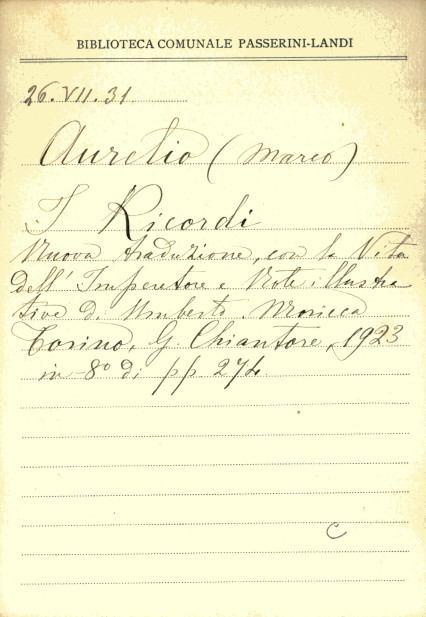 BIBLIOTECA COMUNALE PASSERINI-LANDI
26.VII.31
Aurelio (Marco)
I Ricordi
Nuova traduzione, con la Vita
dell' Imperatore e Note illustra
tive di Umberto Moricca
Torino, G. Chiantore, 1923
in-8º di pp 274.
C